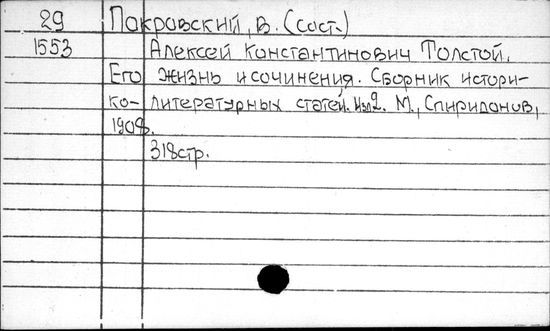 29 Покровский, В. (сост.)
1553 Алексей Константинович Толстой.
Его жизнь и сочинения. Сборник истори-
ко-литературных статей. Изд. 2. М., Спиридонов,
1908.
318стр.